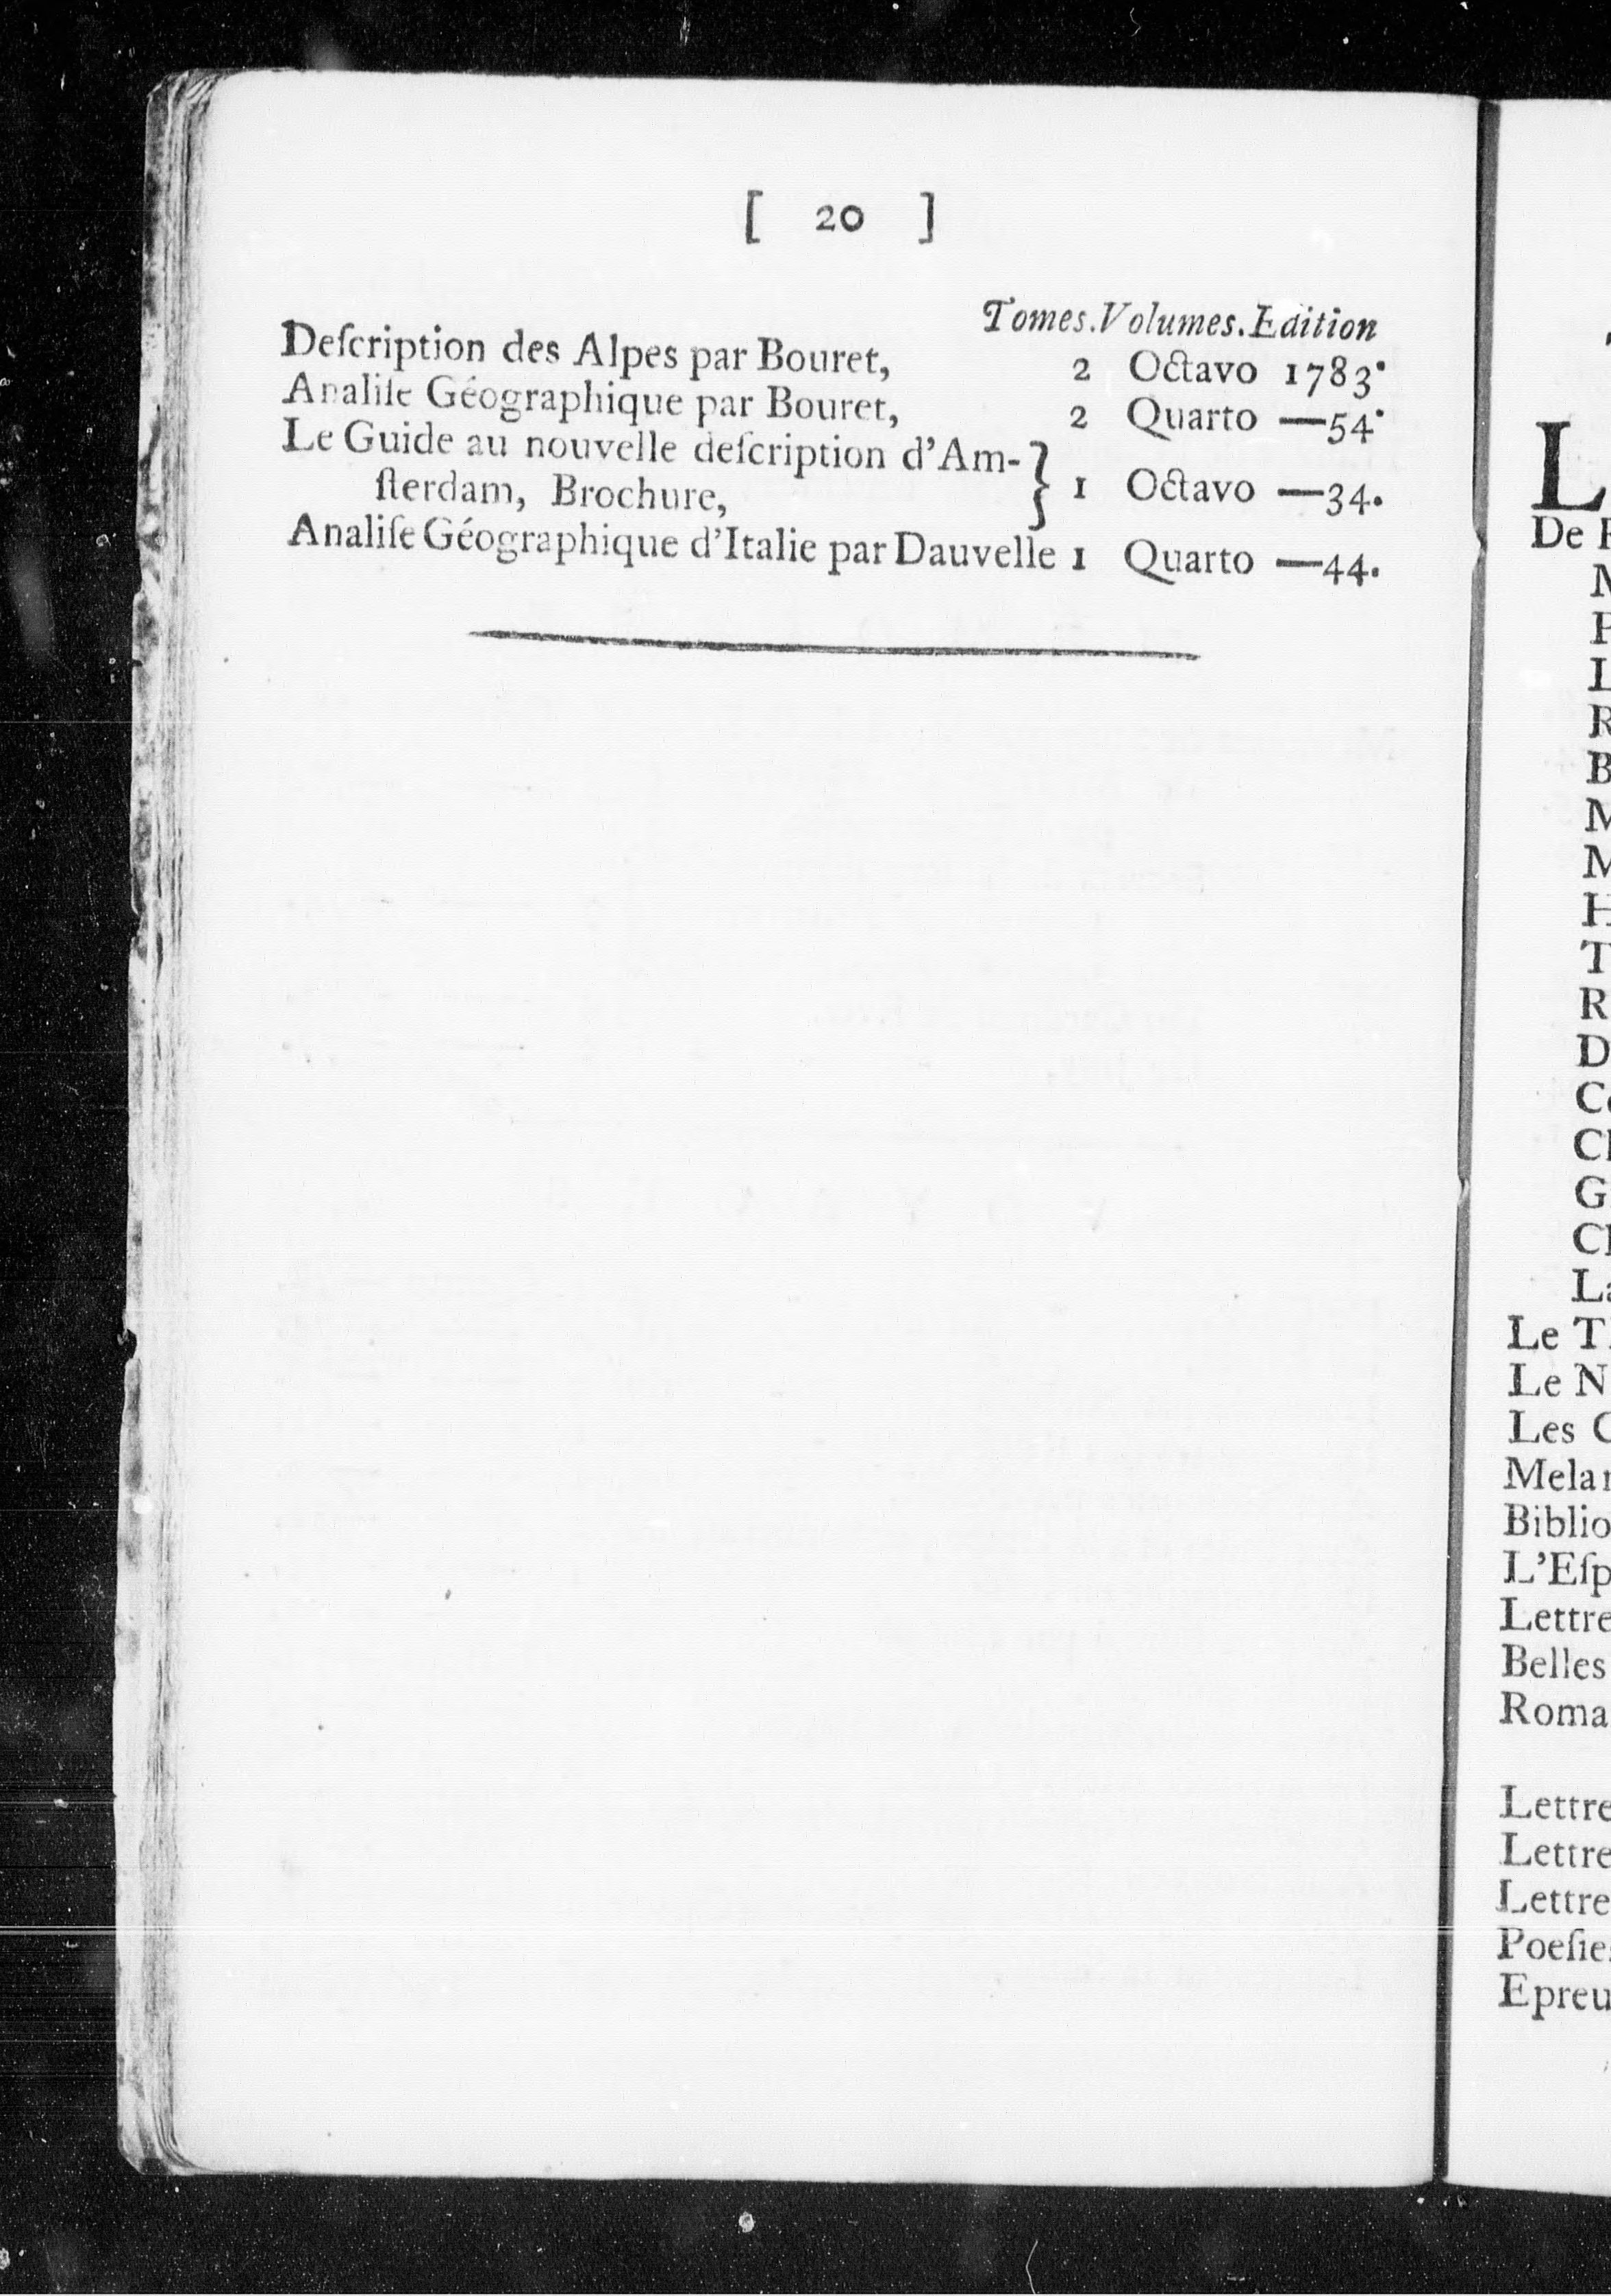 [ 20 ]
Tomes.Volumes.Edition
Deſcription des Alpes par Bouret, 2 Octavo 1783.
Analiſe Géographique par Bouret, 2 Quarto —54.
Le Guide au nouvelle deſcription d'Am-
ſterdam, Brochure, } 1 Octavo —34.
Analiſe Géographique d'Italie par Dauvelle 1 Quarto —44.
L
De
M
P
L
R
B
M
M
H
T
R
D
C
G
La
Le
Le N
Les
Biblio
L'Eſp
Lettre
Belles
Roma
Lettre
Lettre
Lettre
Poeſie
Epreu